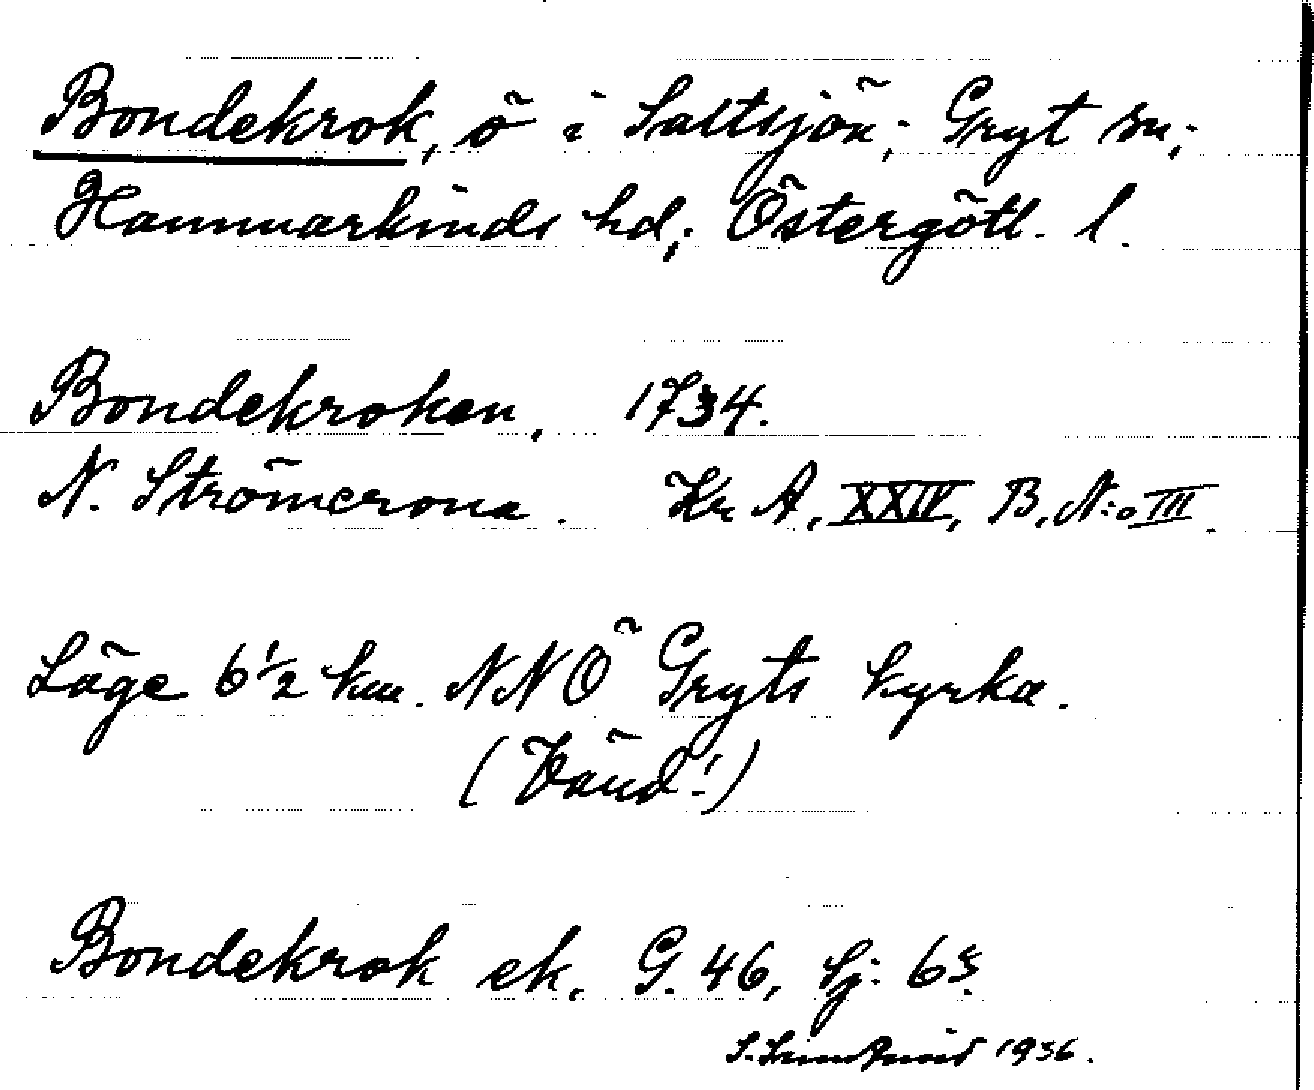 Bondekrok, ö i Saltsjön; Gryt sn;
Hammarkinds hd; Östergötl. l.
Bondekroken, 1734.
N. Strömcrona. Kr A, XXIV, B, N:o III.
Läge 6 1/2 km. NNO Gryts kyrka.
(Vänd!)
Bondekrok ek. G. 46, Sj: 63.
1936.